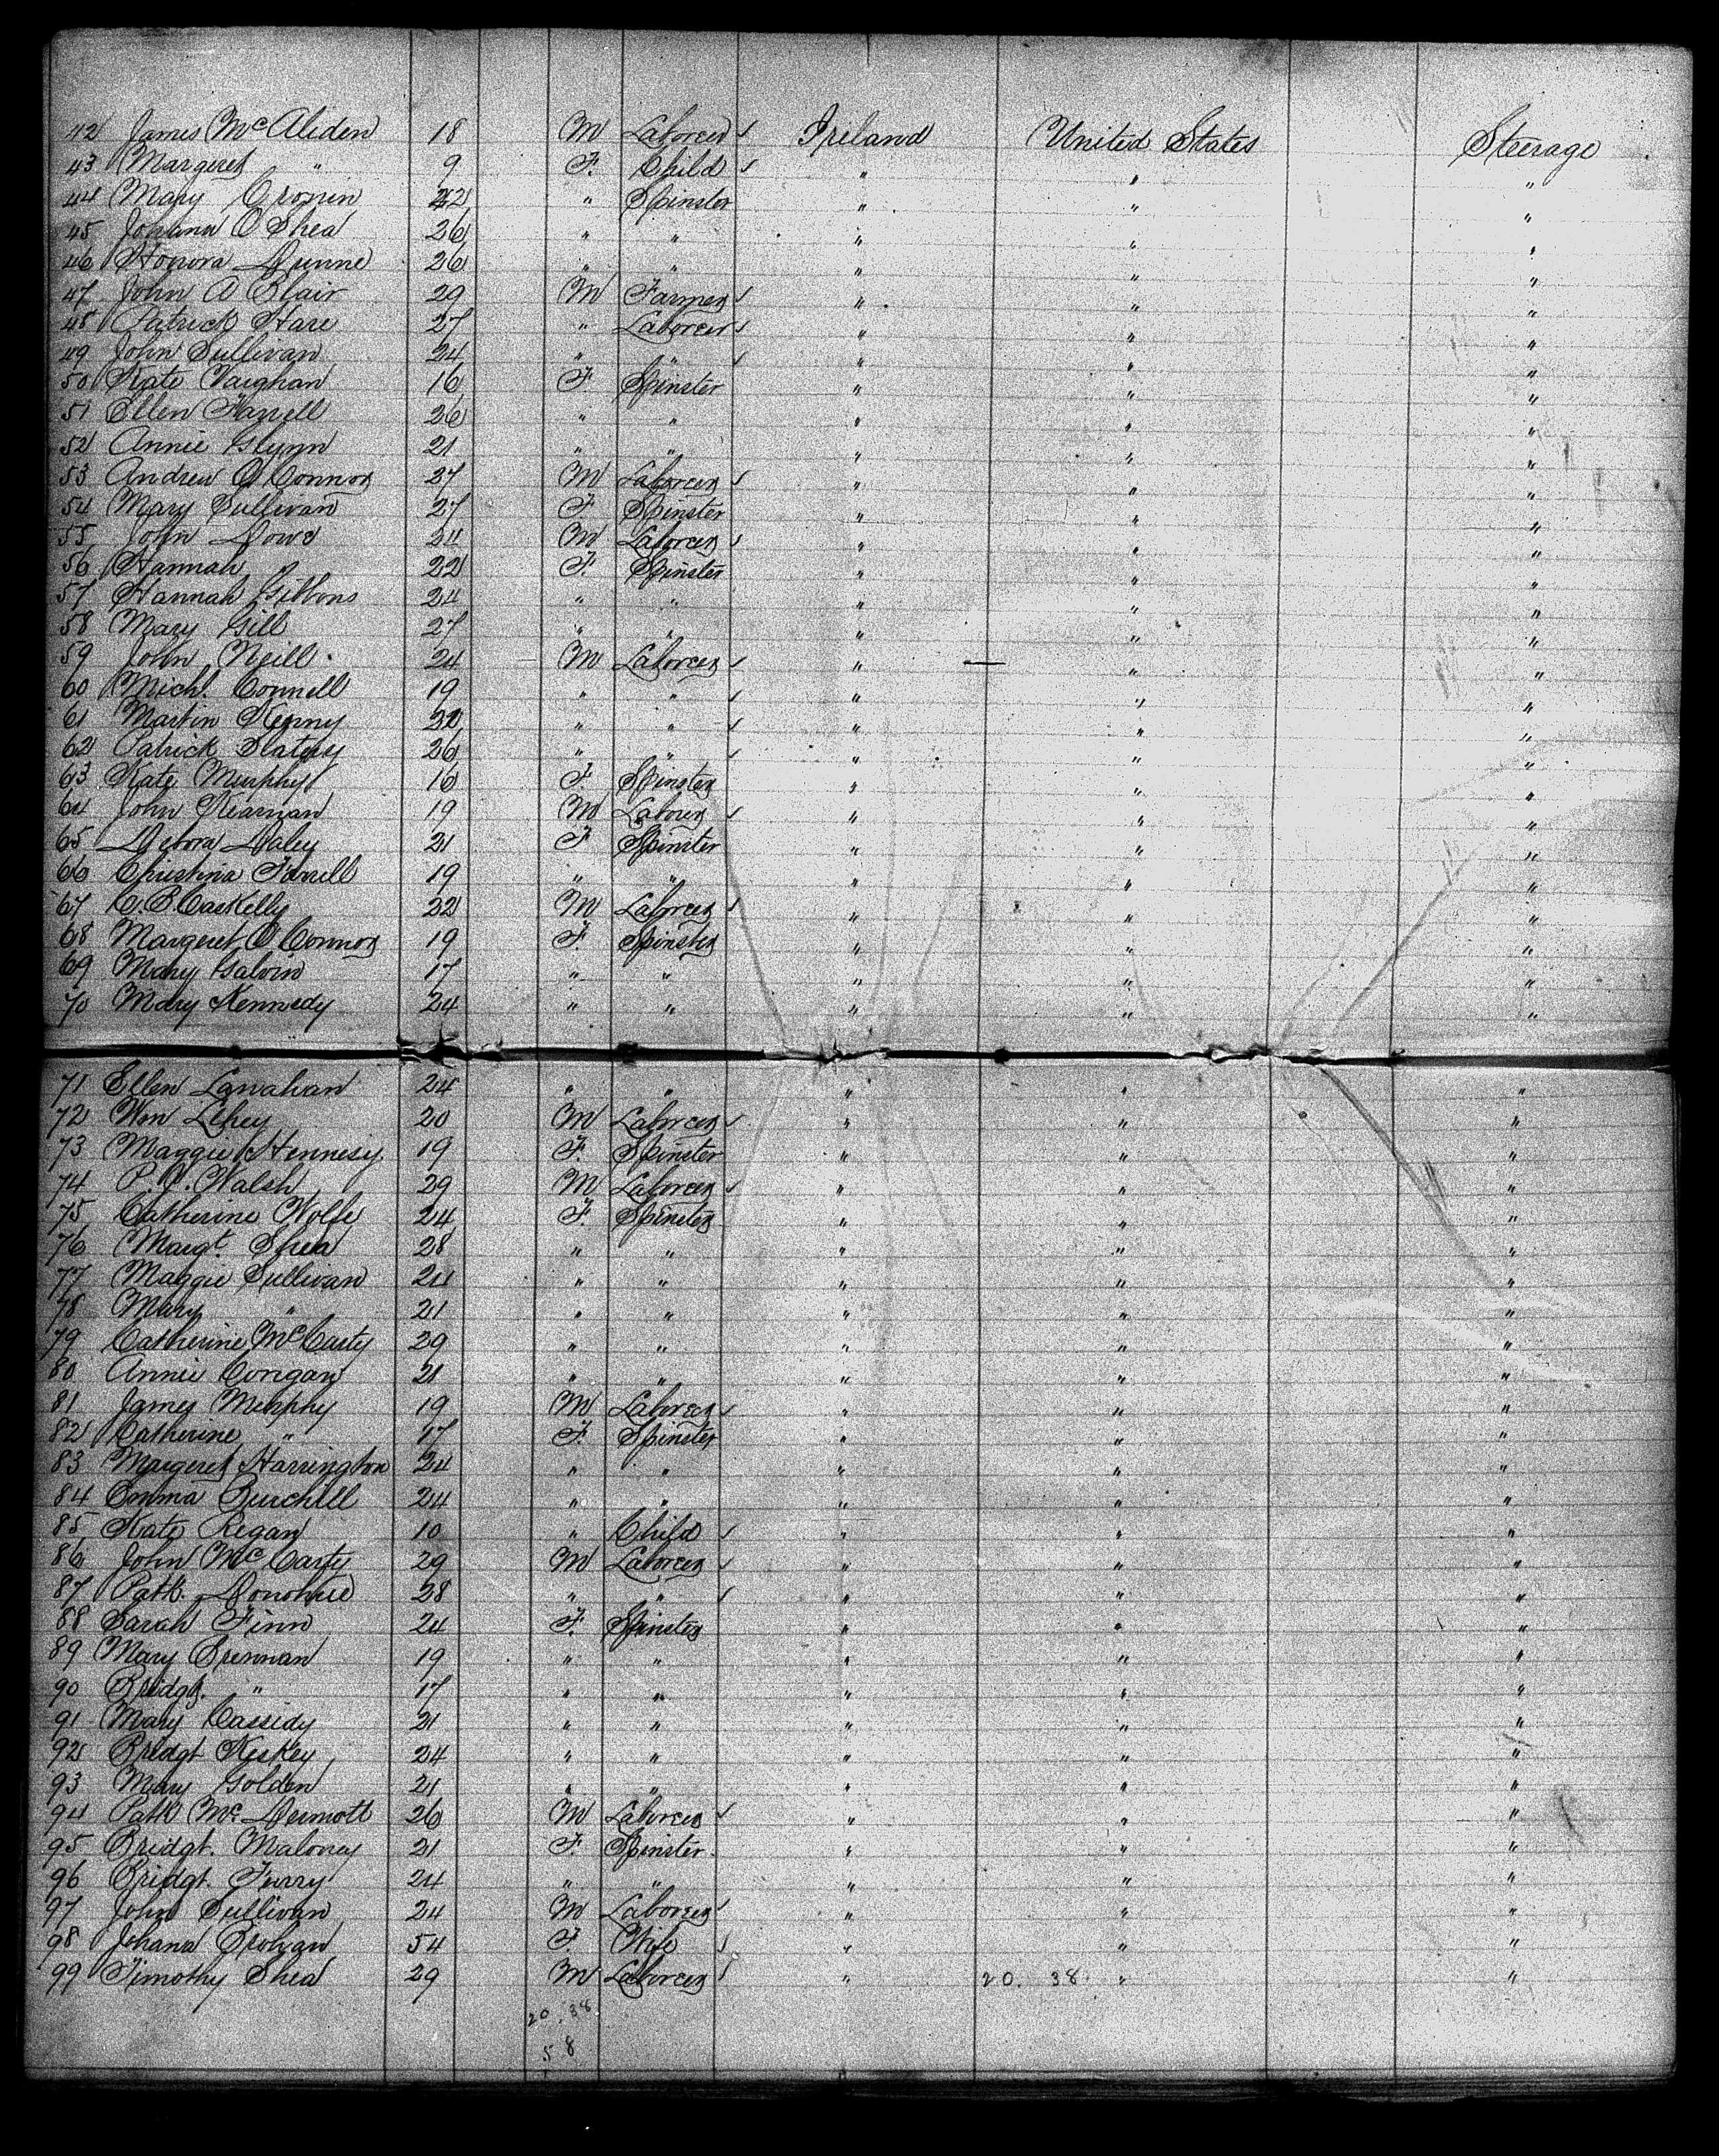 42 James McAliden 18 M Laborer ✓ Ireland United States Steerage
43 Margeret " 9 F. Child ✓ " " "
44 Mary Cronin 42 " Spinster " " "
45 Johana O Shea 26 " " " " "
46 Honora Dunne 26 " " " " "
47 John A Blair 29 M Farmer ✓ " " "
48 Patrick Hare 27 " Laborer ✓ " " "
49 John Sullivan 24 " " ✓ " " "
50 Kate Vaughan 16 F Spinster " " "
51 Ellen Farrell 26 " " " " "
52 Annie Glynn 21 " " " " "
53 Andrew O Connor 27 M Laborer ✓ " " "
54 Mary Sullivan 27 F Spinster " " "
55 John Dowd 24 M Laborer ✓ " " "
56 Hannah 22 F. Spinster " " "
57 Hannah Gibbons 24 " " " " "
58 Mary Gill 27 " " " " "
59 John Neill 24 M Laborer ✓ " " "
60 Michl. Connell 19 " " ✓ " " "
61 Martin Kenny " " ✓ " " "
62 Patrick Slatery 26 " " ✓ " " "
63 Kate Murphy 16 F Spinster " " "
64 John Kiernan 19 M Laborer ✓ " " "
65 Debora Daley 21 F Spinster " " "
66 Christina Farrell 19 " " " " "
67 C. B. Caskelly 22 M Laborer ✓ " " "
68 Margeret O Connor 19 F. Spinster " " "
69 Mary Galvin 17 " " " " "
70 Mary Kennedy 24 " " " " "
71 Ellen Lanahan 24 " " " " "
72 Wm Lehey 20 M Laborer ✓ " " "
73 Maggie Hennesiy 19 F. Spinster " " "
74 P. J. Walsh 29 M Laborer ✓ " " "
75 Catherine Wolfe 24 F. Spinster " " "
76 Margt. Shea 28 " " " " "
77 Maggie Sullivan 24 " " " " "
78 Mary " 21 " " " " "
79 Catherine McCarty 29 " " " " "
80 Annie Corigan 21 " " " " "
81 James Murphy 19 M Laborer ✓ " " "
82 Catherine " 17 F. Spinster " " "
83 Margeret Harrington 24 " " " " "
84 Emma Burchill 24 " " " " "
85 Kate Regan 10 " Child ✓ " " "
86 John McCarty 29 M Laborer ✓ " " "
87 Patk. Donohue 28 " " ✓ " " "
88 Sarah Finn 24 F. Spinster " " "
89 Mary Brennan 19 " " " " "
90 Bridgt. " 17 " " " " "
91 Mary Cassidy 21 " " " " "
92 Bridgt Keskey 24 " " " " "
93 Mary Golden 21 " " " " "
94 Patk McDermott 26 M Laborer ✓ " " "
95 Bridgt. Maloney 21 F. Spinster " " "
96 Bridgt. Furry 24 " " " " "
97 John Sullivan 24 M Laborer ✓ " " "
98 Johana Brohan 54 F. Wife ✓ " " "
99 Timothy Shea 29 M Laborer ✓ " 20. 38 " "
20. 38
58